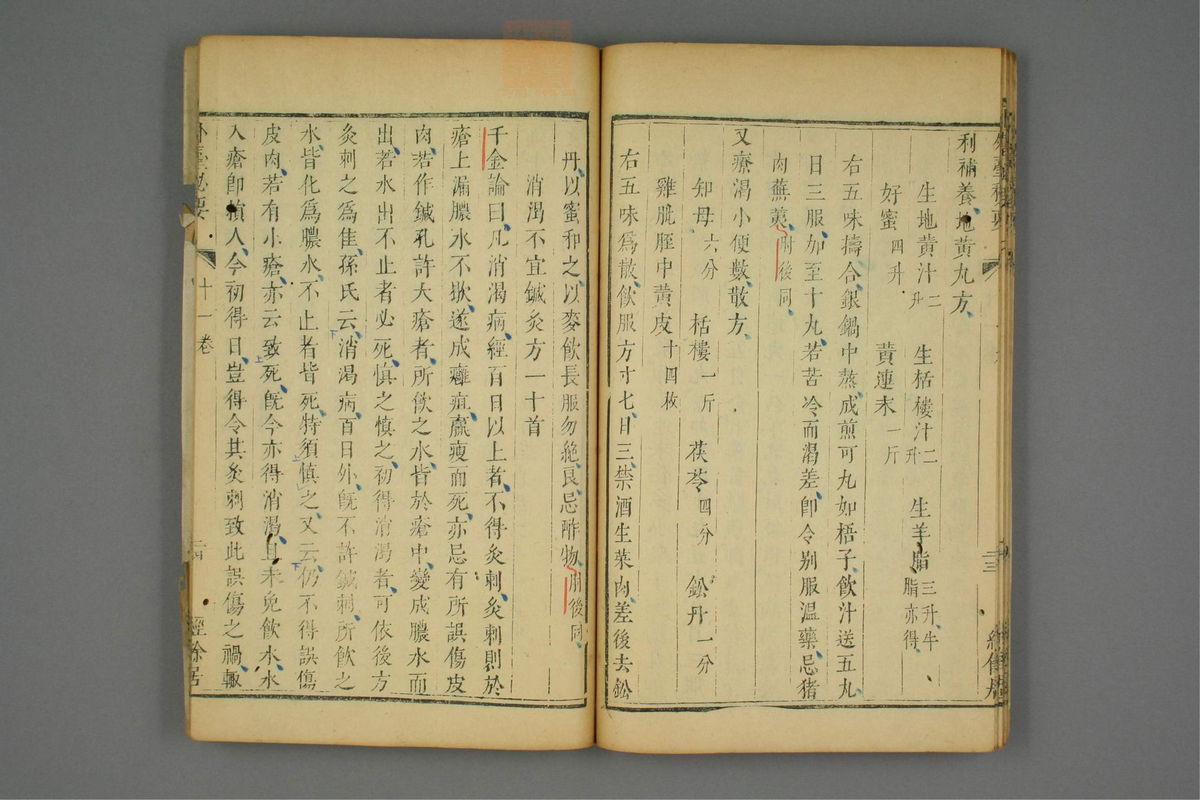 利補養地黄丸方
生地黄汁二升 生栝樓汁二升 生羊脂三升牛脂亦得
好蜜四升 黄連末一斤
右五味擣合銀鍋中蒸成煎可丸如梧子飲汁送五丸
日三服加至十丸若苦冷而渴差即令別服温藥忌猪
肉蕪荑肘後同
又療渴小便數散方
知母六分 栝樓一斤 茯苓四分 鈆丹一分
雞肶胵中黄皮十四枚
右五味爲散飲服方寸七日三禁酒生菜肉差後去鈆
丹以蜜和之以麥飲長服勿絶良忌酢物肘後同
消渴不宜鍼灸方一十首
千金論曰凡消渴病經百日以上者不得灸刺灸刺則於
瘡上漏膿水不歇遂成癰疽羸瘦而死亦忌有所誤傷皮
肉若作鍼孔許大瘡者所飲之水皆於瘡中變成膿水而
出若水出不止者必死慎之慎之初得消渴者可依後方
灸刺之爲佳孫氏云消渴病百日外旣不許鍼刺所飲之
水皆化爲膿水不止者皆死特須慎之又云仍不得誤傷
皮肉若有小瘡亦云致死旣今亦得消渴且未免飲水水
入瘡即損人今初得日豈得令其灸刺致此誤傷之禍輙
外臺祕要 十一卷 二四 經餘居